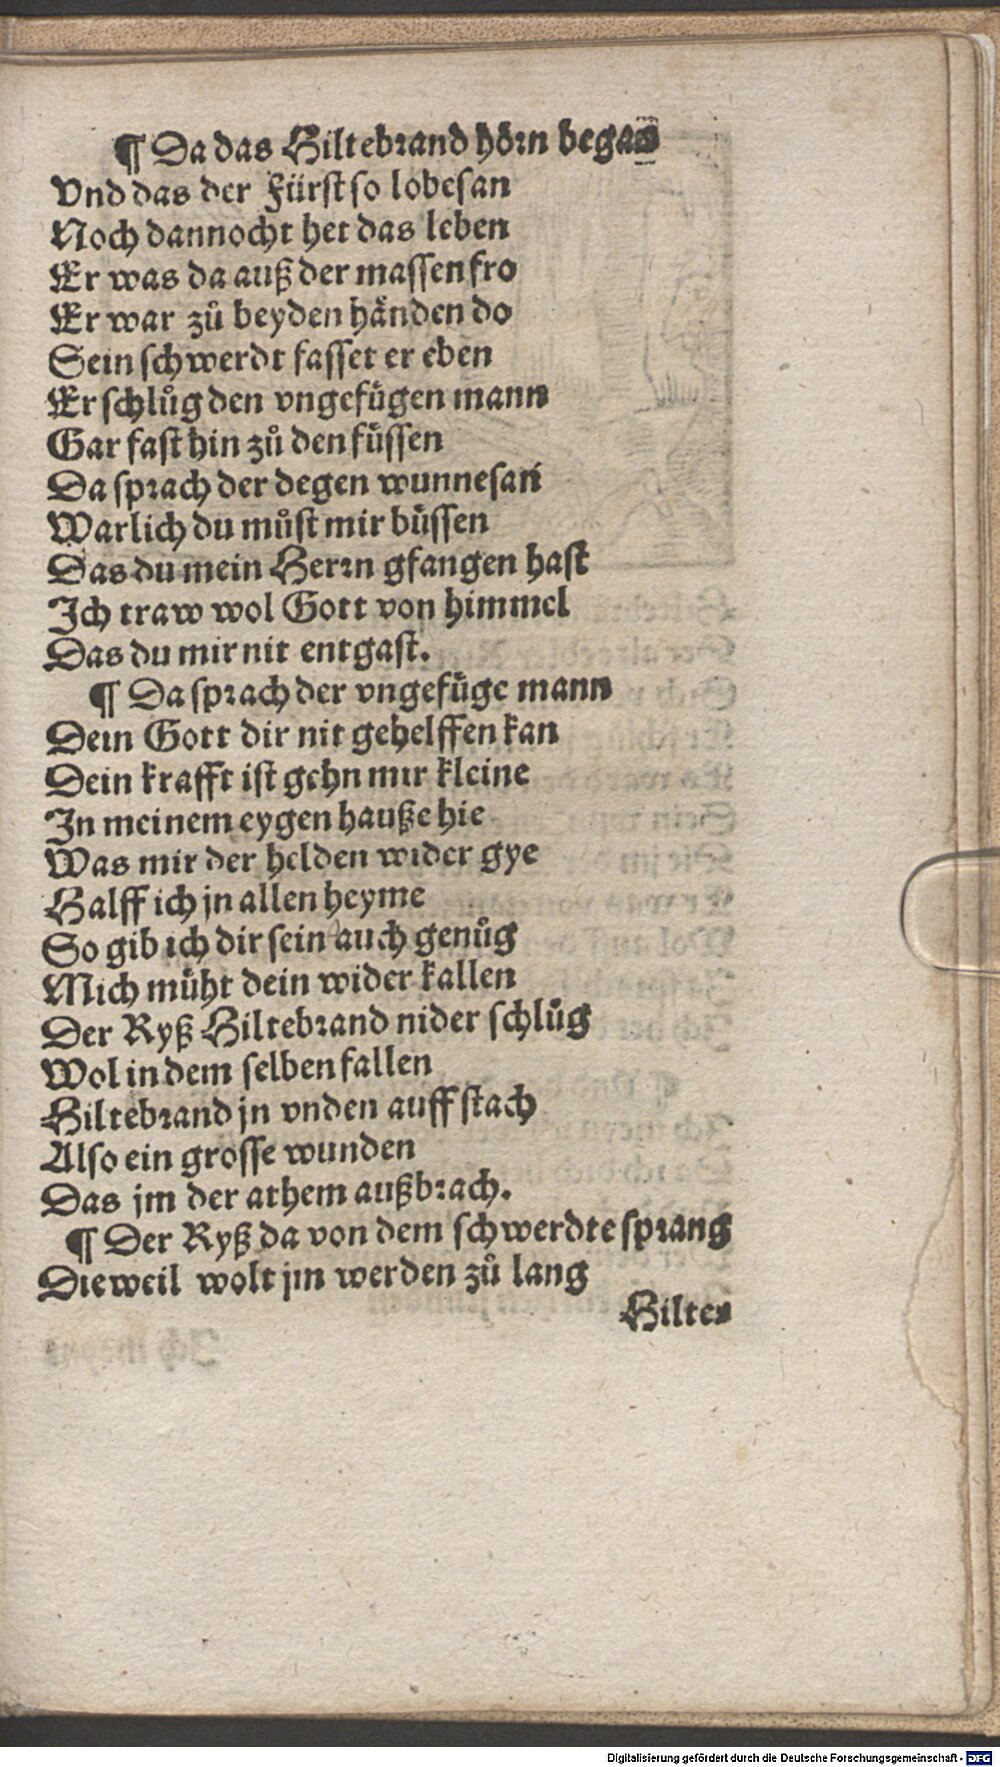 ¶ Da das Hiltebrand hörn began
Vnd das der Fürst so lobesan
Noch dannocht het das leben
Er was da auß der massen fro
Er war zů beyden händen do
Sein schwerdt fasset er eben
Er schlůg den vngefügen mann
Gar fast hin zů den füssen
Da sprach der degen wunnesan
Warlich du můst mir büssen
Das du mein Herrn gfangen hast
Ich traw wol Gott von himmel
Das du mir nit entgast.
¶ Da sprach der vngefüge mann
Dein Gott dir nit gehelffen kan
Dein krafft ist gehn mir kleine
In meinem eygen hauße hie
Was mir der helden wider gye
Halff ich jn allen heyme
So gib ich dir sein auch genůg
Mich müht dein wider kallen
Der Ryß Hiltebrand nider schlůg
Wol in dem selben fallen
Hiltebrand jn vnden auff stach
Also ein grosse wunden
Das jm der athem außbrach.
¶ Der Ryß da von dem schwerdte sprang
Dieweil wolt jm werden zů lang
Hilte⸗
Digitalisierung gefördert durch die Deutsche Forschungsgemeinschaft - DFG